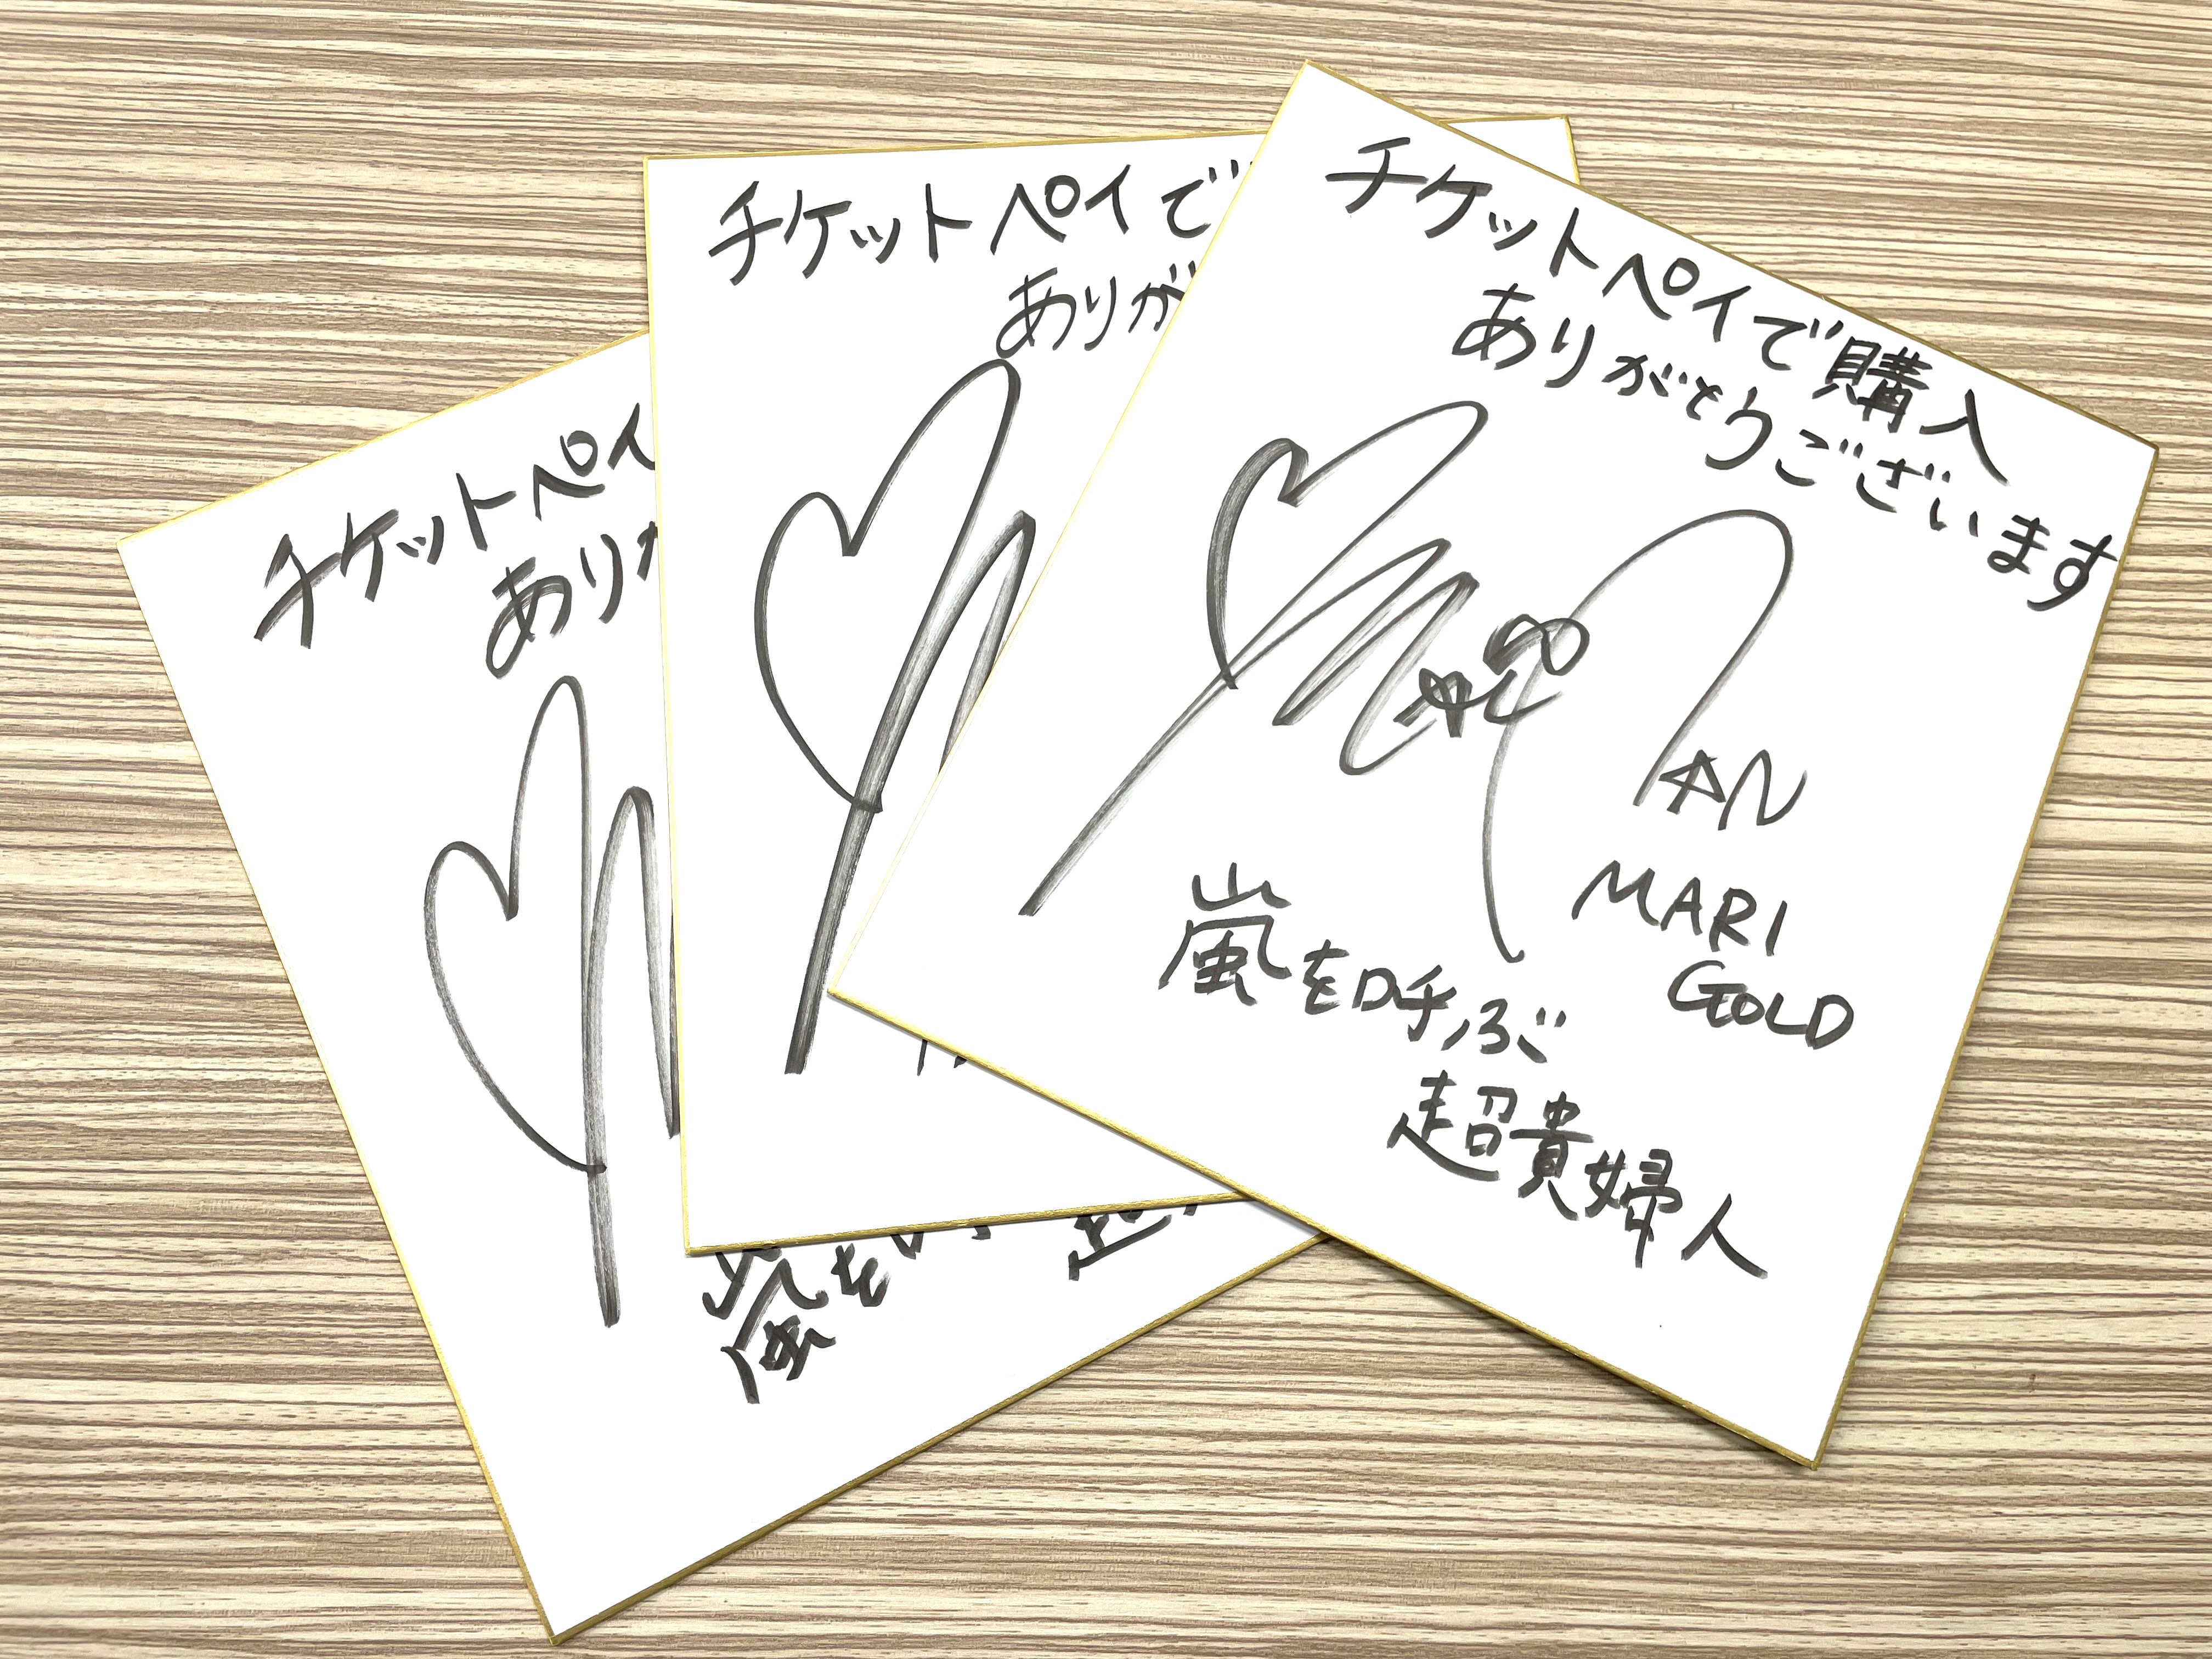 チケットペイ
あり
嵐を
チケットペイで
ありが
チケットペイで購入
ありがとうございます
AN
MARI
GOLD
嵐を呼ぶ
超貴婦人